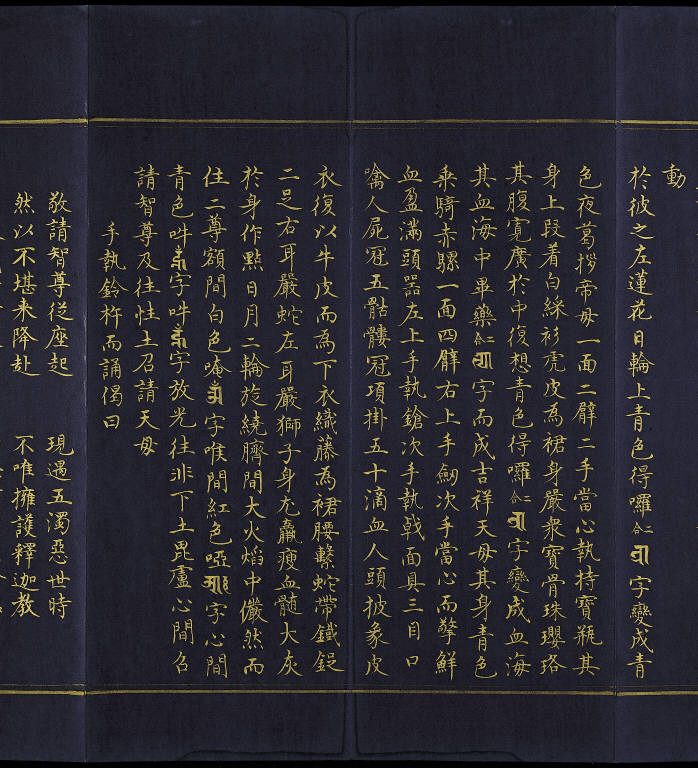 動
於彼之左蓮花日輪上青色得囉二合字變成青
色夜葛拶帝母一面二臂二手當心執持寶瓶其
身上段着白綵衫虎皮為裙身嚴衆寶骨珠瓔珞
其腹寬廣於中復想青色得囉二合字變成血海
其血海中畢藥二合字而成吉祥天母其身青色
乘騎赤騾一面四臂右上手劒次手當心而擎鮮
血盈滿頭器左上手執鎗次手執戟面具三目口
噙人屍冠五骷髏冠項掛五十滴血人頭披象皮
衣復以牛皮而為下衣織藤為裙腰繫蛇帶鐵鋜
二足右耳嚴蛇左耳嚴獅子身尤羸瘦血髓大灰
於身作㸃日月二輪旋繞臍間大火焰中儼然而
住二尊額間白色唵字喉間紅色啞字心間
青色吽字吽字放光往非下土毘盧心間召
請智尊及往性土召請天母
手執鈴杵而誦偈曰
敬請智尊從座起 現遇五濁惡世時
然以不堪来降赴 不唯擁護釋迦教